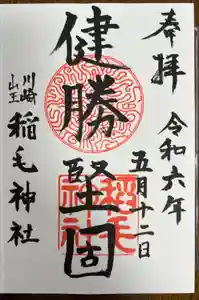 奉拝
令和六年
五月十二日
健勝堅固
川崎
山王
稲毛神社
稲毛
神社